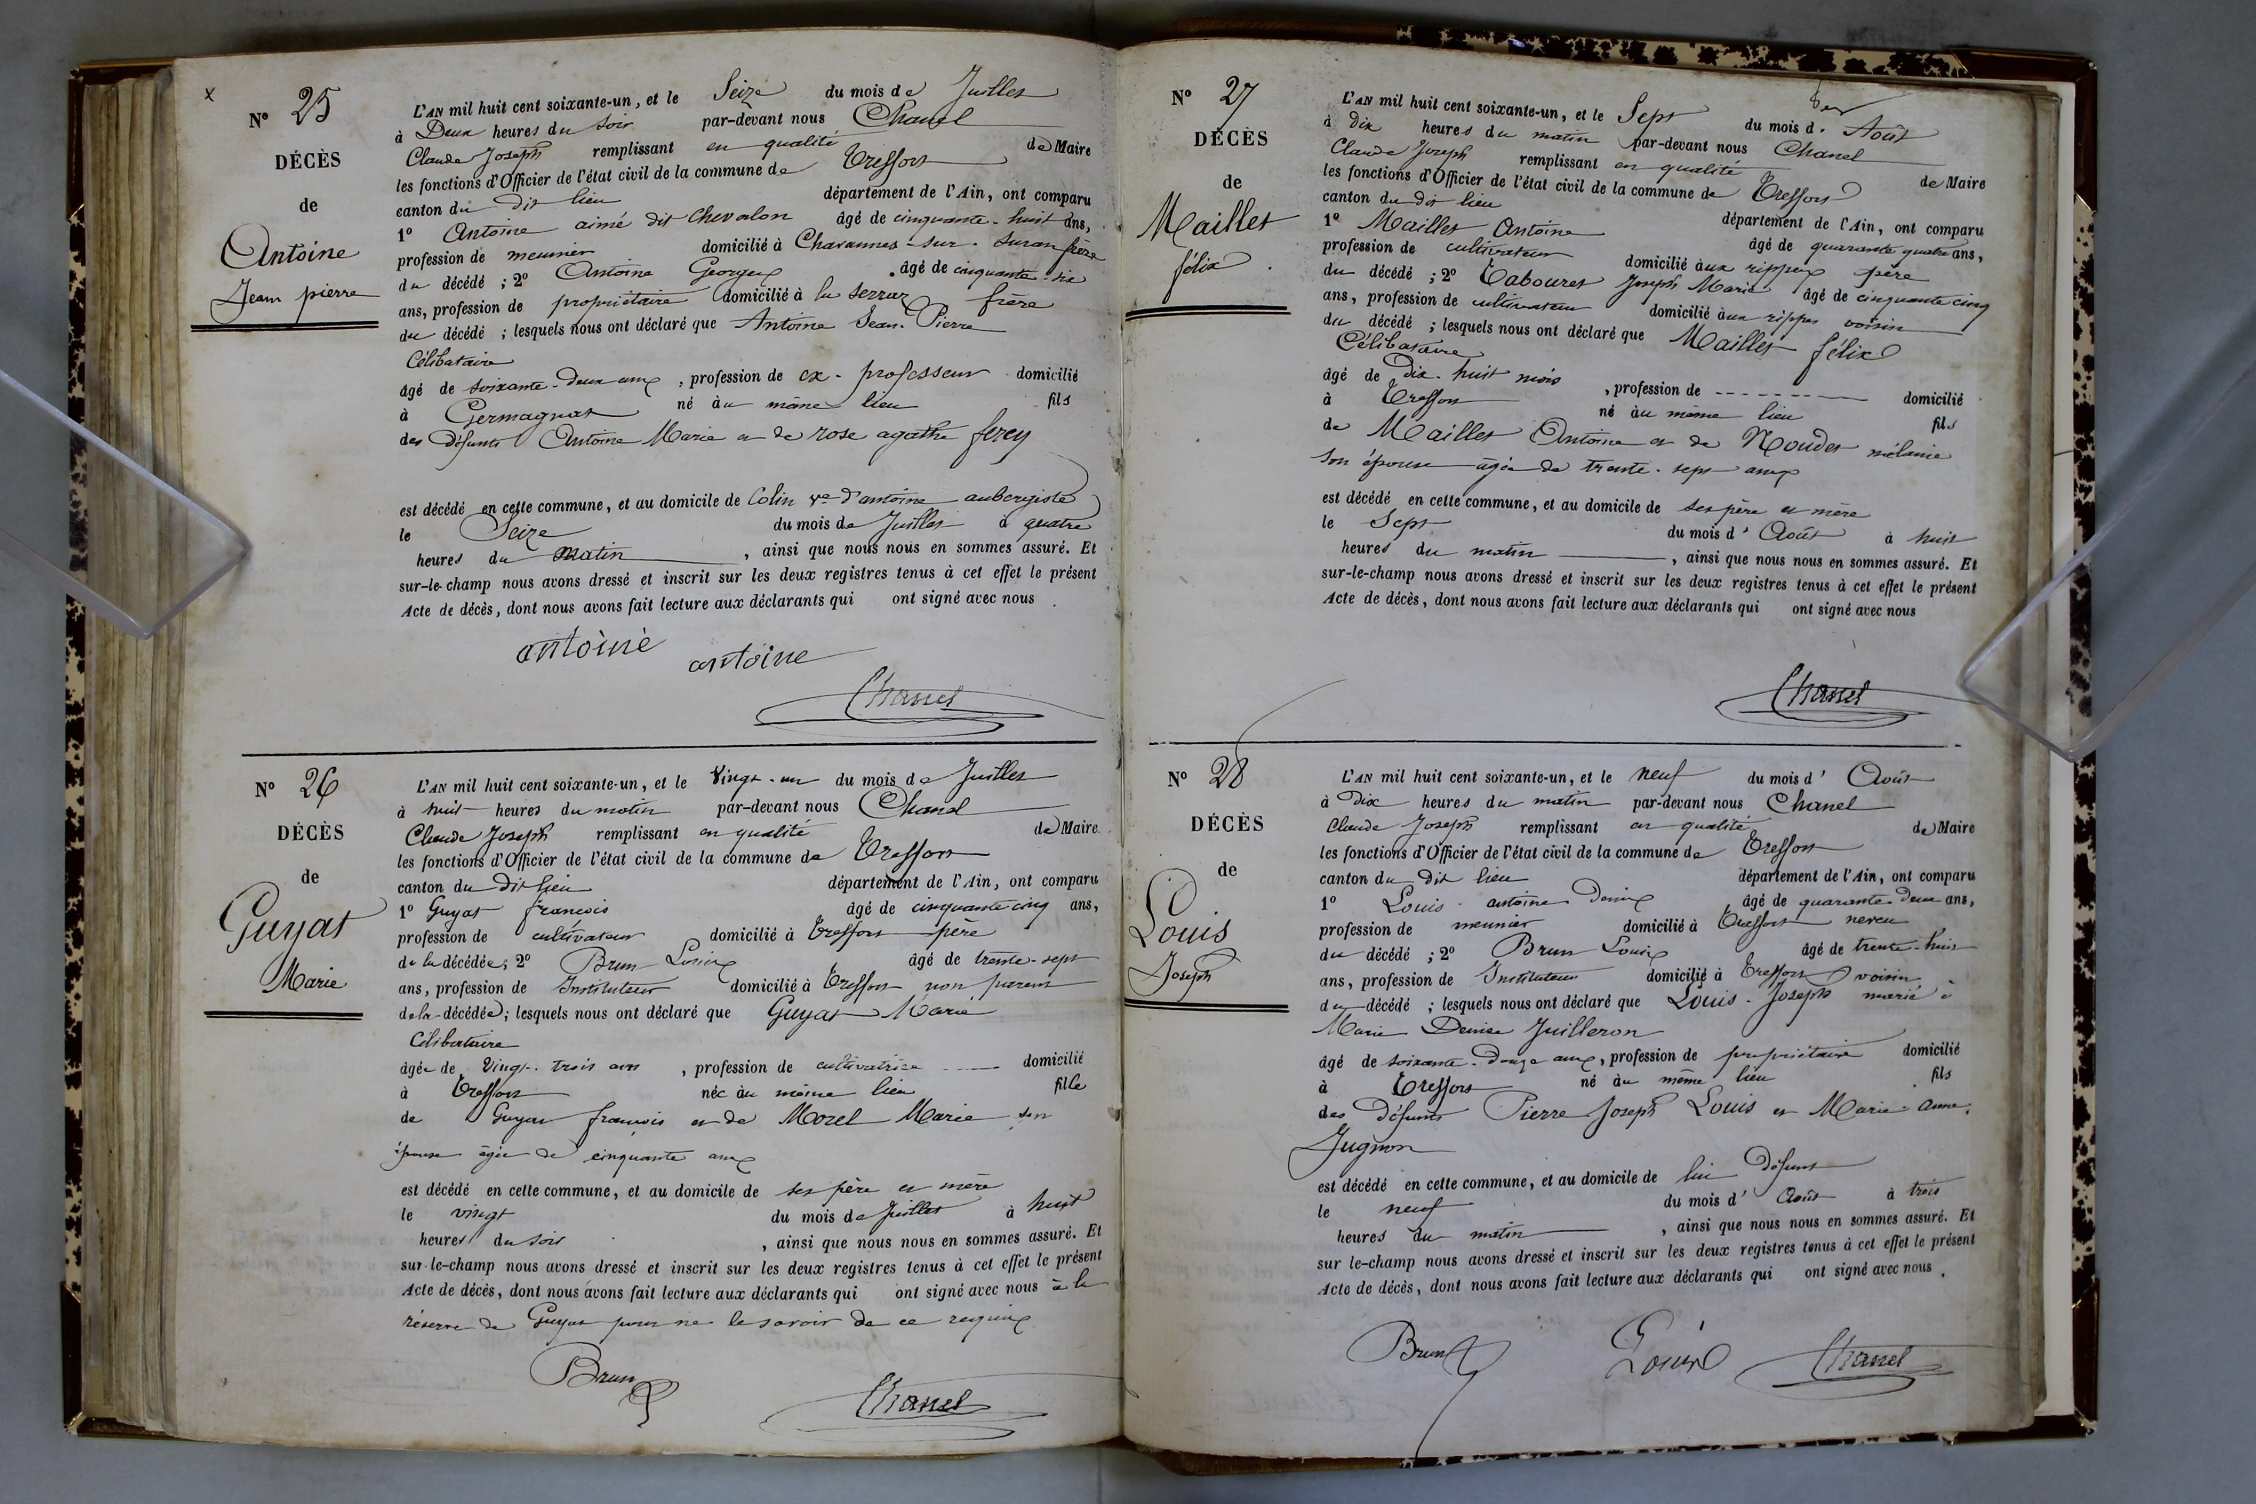 N° 25
DÉCÈS
de
Antoine
Jean pierre
L'AN mil huit cent soixante-un, et le Seize du mois de Juillet
à Deux heures du soir par-devant nous Chanel
Claude Joseph remplissant en qualité de Maire
les fonctions d'Officier de l'état civil de la commune de Treffort
canton du dit lieu département de l'Ain, ont comparu
1° Antoine aimé dit Chevalon âgé de cinquante-huit ans,
profession de meunier domicilié à Chavannes-sur-Suran frère
du décédé ; 2° Antoine Georges âgé de cinquante-six
ans, profession de propriétaire domicilié à la serraz frère
du décédé ; lesquels nous ont déclaré que Antoine Jean-Pierre
Célibataire
âgé de soixante-deux ans, profession de ex-professeur domicilié
à Germagnat né au même lieu fils
des défunts Antoine Marie et de rose agathe ferey
est décédé en cette commune, et au domicile de Colin ve d'antoine aubergiste
le Seize du mois de Juillet à quatre
heures du matin, ainsi que nous nous en sommes assuré. Et
sur-le-champ nous avons dressé et inscrit sur les deux registres tenus à cet effet le présent
Acte de décès, dont nous avons fait lecture aux déclarants qui ont signé avec nous.
antoine antoine
Chanel
N° 26
DÉCÈS
de
Guyat
Marie
L'AN mil huit cent soixante-un, et le Vingt-un du mois de Juillet
à huit heures du matin par-devant nous Chanel
Claude Joseph remplissant en qualité de Maire
les fonctions d'Officier de l'état civil de la commune de Treffort
canton du dit lieu département de l'Ain, ont comparu
1° Guyat françois âgé de cinquante cinq ans,
profession de cultivateur domicilié à Treffort père
de la décédée ; 2° Brun Louis âgé de trente-sept
ans, profession de Instituteur domicilié à Treffort non parent
de la décédée ; lesquels nous ont déclaré que Guyat Marie
Célibataire
âgée de Vingt-trois ans, profession de cultivatrice domicilié
à Treffort née au même lieu fille
de Guyat françois et de Morel Marie son
épouse âgée de cinquante ans
est décédé en cette commune, et au domicile de ses père et mère
le vingt du mois de Juillet à huit
heures du soir, ainsi que nous nous en sommes assuré. Et
sur-le-champ nous avons dressé et inscrit sur les deux registres tenus à cet effet le présent
Acte de décès, dont nous avons fait lecture aux déclarants qui ont signé avec nous à la
réserve de Guyat pour ne le savoir de ce requis
Brun
Chanel
N° 27
DÉCÈS
de
Maillet
félix
L'AN mil huit cent soixante-un, et le Sept du mois d' Août
à dix heures du matin par-devant nous Chanel
Claude Joseph remplissant en qualité de Maire
les fonctions d'Officier de l'état civil de la commune de Treffort
canton du dit lieu département de l'Ain, ont comparu
1° Maillet Antoine âgé de quarante quatre ans,
profession de cultivateur domicilié aux rippes père
du décédé ; 2° Tabouret Joseph Marie âgé de cinquante cinq
ans, profession de cultivateur domicilié aux rippes voisin
du décédé ; lesquels nous ont déclaré que Maillet félix
Célibataire
âgé de Dix-huit mois, profession de domicilié
à Treffort né au même lieu fils
de Maillet Antoine et de Noudet mélanie
son épouse âgée de trente-sept ans
est décédé en cette commune, et au domicile de ses père et mère
le Sept du mois d' Août à huit
heures du matin, ainsi que nous nous en sommes assuré. Et
sur-le-champ nous avons dressé et inscrit sur les deux registres tenus à cet effet le présent
Acte de décès, dont nous avons fait lecture aux déclarants qui ont signé avec nous
Chanel
N° 28
DÉCÈS
de
Louis
Joseph
L'AN mil huit cent soixante-un, et le neuf du mois d' Août
à Dix heures du matin par-devant nous Chanel
Claude Joseph remplissant en qualité de Maire
les fonctions d'Officier de l'état civil de la commune de Treffort
canton du dit lieu département de l'Ain, ont comparu
1° Louis antoine Denis âgé de quarante-deux ans,
profession de meunier domicilié à Treffort neveu
du décédé ; 2° Brun Louis âgé de trente-huit
ans, profession de Instituteur domicilié à Treffort voisin
du décédé ; lesquels nous ont déclaré que Louis Joseph marié à
Marie Denise Juilleron
âgé de soixante-douze ans, profession de propriétaire domicilié
à Treffort né au même lieu fils
des défunts Pierre Joseph Louis et Marie anne
Jugnon
est décédé en cette commune, et au domicile de lui défunt
le neuf du mois d' Août à trois
heures du matin, ainsi que nous nous en sommes assuré. Et
sur le-champ nous avons dressé et inscrit sur les deux registres tenus à cet effet le présent
Acte de décès, dont nous avons fait lecture aux déclarants qui ont signé avec nous.
Brun Louis Chanel